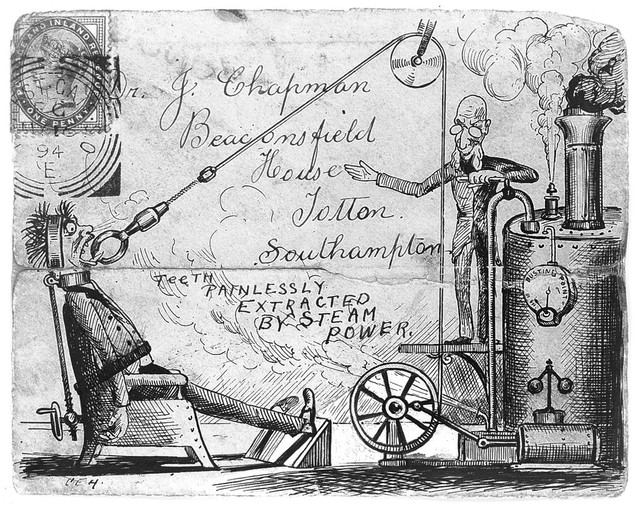 Dr. J. Chapman
Beaconsfield
House
Totton.
Southampton
TEETH
PAINLESSLY
EXTRACTED
BY STEAM
POWER.
BUSTING POINT
94
E